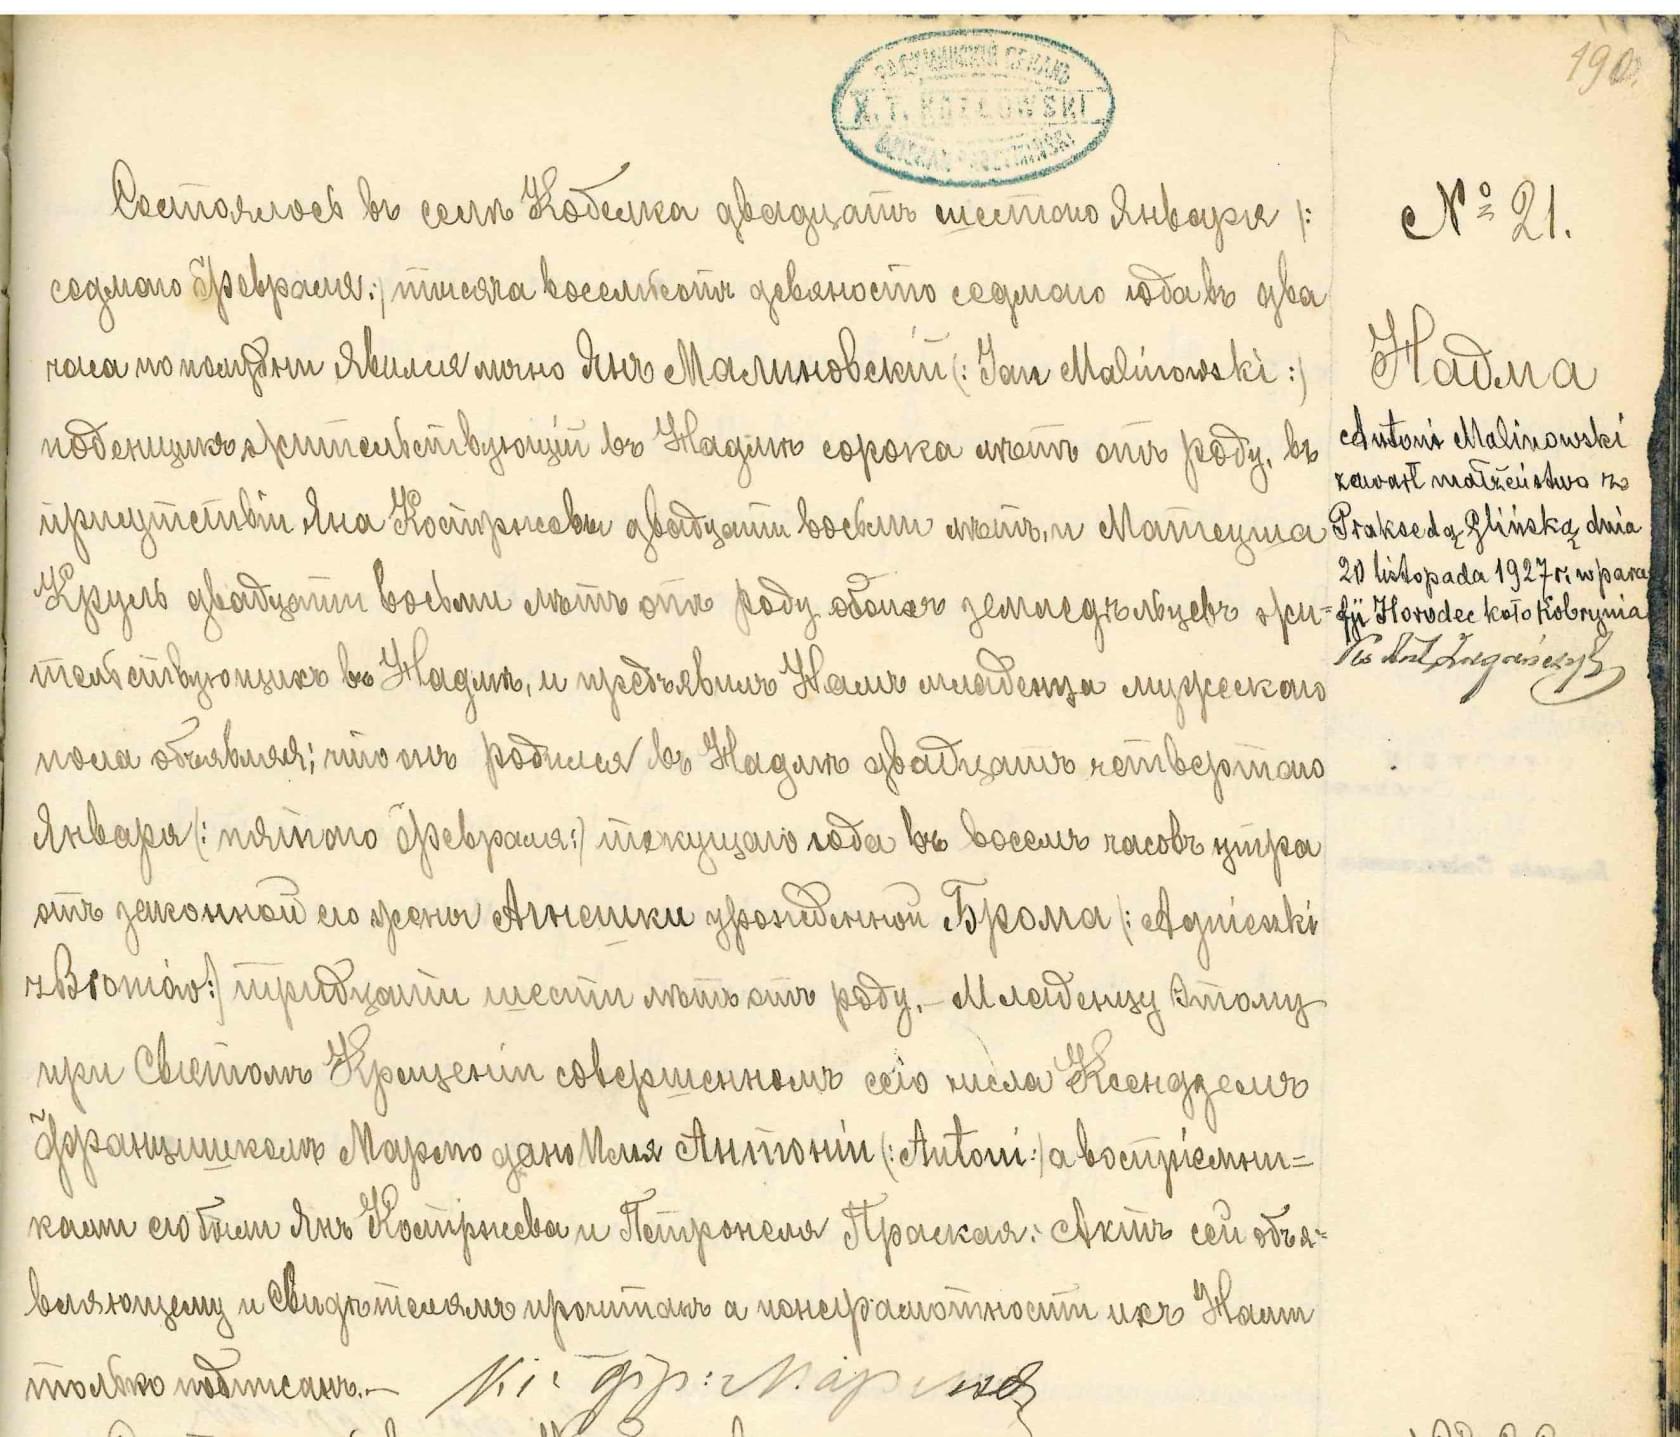 190.
№ 21.
Надма
Состоялось въ селѣ Кобелка двадцать шестаго Января (:
седмаго Февраля:) тысяча восемьсотъ девяносто седмаго года въ два
часа по полудни Явился лично Янъ Малиновскій (: Jan Malinowski :)
поденщикъ жительствующій въ Надмѣ сорока лѣтъ отъ роду, въ
присутствіи Яна Костржевы двадцати восьми лѣтъ, и Матеуша
Круль двадцати восьми лѣтъ отъ роду обоихъ земледѣльцевъ жи=
тельствующихъ въ Надмѣ, и предъявилъ Намъ младенца мужескаго
пола объявляя; что онъ родился въ Надмѣ двадцать четвертаго
Января (: пятаго Февраля:) текущаго года въ восемь часовъ утра
отъ законной его жены Агнешки урожденной Брома (: Agnieszki
z Bromów:) тридцати шести лѣтъ отъ роду. – Младенцу Этому
при Святомъ Крещеніи совершенномъ сего числа Ксендземъ
Францишкомъ Мармо дано Имя Антоній (: Antoni :) а воспріемни=
ками его были Янъ Костржева и Петронеля Праская. Актъ сей объя=
вляющему и Свидѣтелямъ прочитанъ а по неграмотности ихъ Нами
только подписанъ. –
Кс: Фр: Мармо
Antoni Malinowski
zawarł małżeństwo z
Praksedą Glińską dnia
20 listopada 1927 r. w para
fji Horodec koło Kobrynia